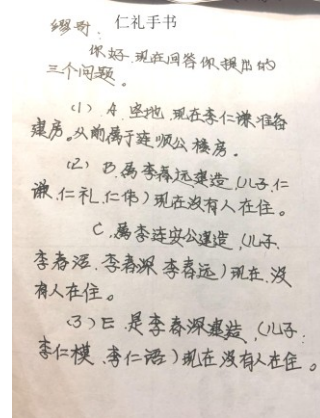 缪哥: 仁礼手书
你好,现在回答你提出的
三个问题。
(1) A 空地,现在李仁谦准备
建房。从前属于连顺公楼房。
(2) B.属李春远建造,(儿子仁
谦.仁礼.仁伟)现在没有人在住。
C.属李连安公建造,(儿子.
李春沼.李春深.李春远)现在.没
有人在住。
(3) E.是李春深建造,(儿子:
李仁模.李仁语)现在没有人在住。